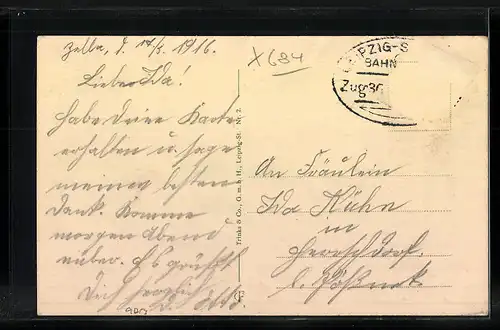 Zella, d. 17/3. 1916.
Liebe Ida!
Habe deine Karte
erhalten u. sage
meinen besten
Dank. Komme
morgen Abend
rüber. Es grüsst
Dich herzlich
Trinks & Co., G. m. b. H., Leipzig-St. Nr. 2.
X 684
LEIPZIG-S
BAHN
Zug
An Fräulein
Ida Kühn
in
Herrschdorf
b. Pößneck.